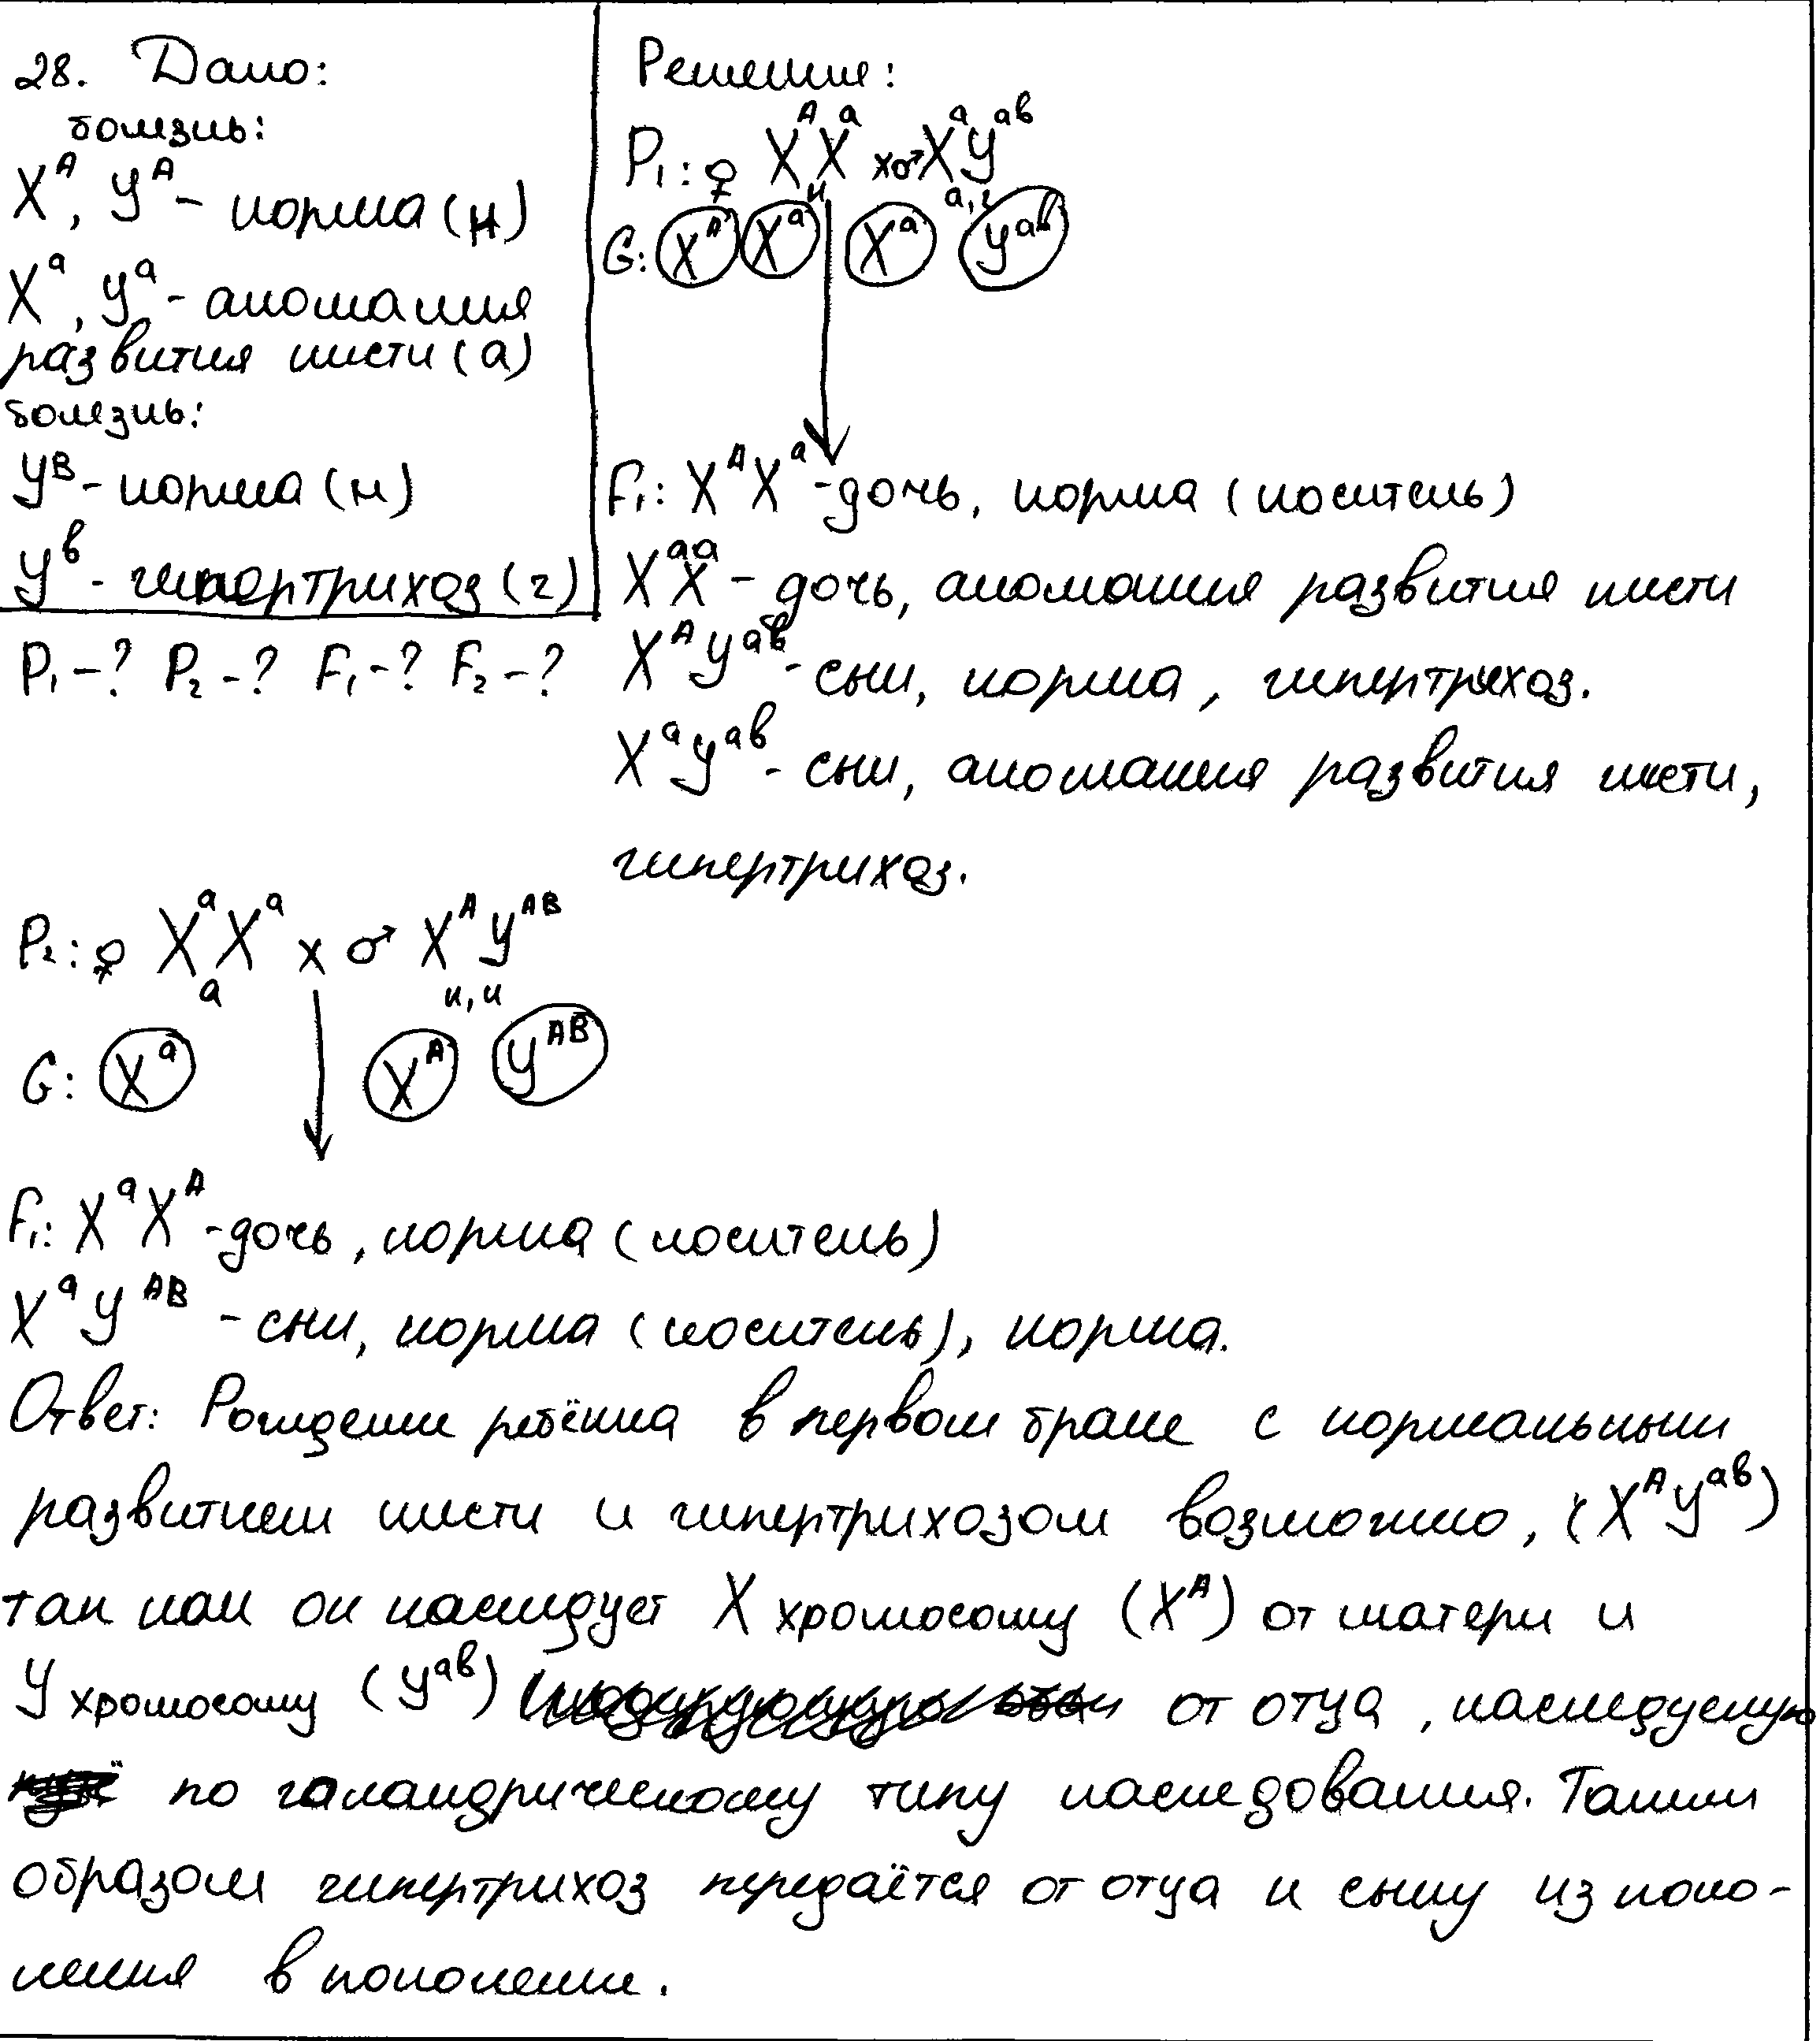 28. Дано:
болезнь:
Xᴬ, Yᴬ - норма (н)
Xᵃ, Yᵃ - аномалия
развития кисти (а)
болезнь:
Yᴮ - норма (н)
Yᵇ - гипертрихоз (г)
P₁ - ? P₂ - ? F₁ - ? F₂ - ?
Решение:
P₁: ♀ XᴬXᵃ x ♂ XᵃYᵃᵇ
н а, г
G: Xᴬ Xᵃ Xᵃ Yᵃᵇ
F₁: XᴬXᵃ - дочь, норма (носитель)
XᵃXᵃ - дочь, аномалия развития кисти
XᴬYᵃᵇ - сын, норма, гипертрихоз.
XᵃYᵃᵇ - сын, аномалия развития кисти,
гипертрихоз.
P₂: ♀ XᵃXᵃ x ♂ XᴬYᴬᴮ
а н, н
G: Xᵃ Xᴬ Yᴬᴮ
F₁: XᵃXᴬ - дочь, норма (носитель)
XᵃYᴬᴮ - сын, норма (носитель), норма.
Ответ: Рождение ребёнка в первом браке с нормальным
развитием кисти и гипертрихозом возможно, (XᴬYᵃᵇ)
так как он наследует X хромосому (Xᴬ) от матери и
Y хромосому (Yᵃᵇ) от отца, наследуемую
по голандрическому типу наследования. Таким
образом гипертрихоз передаётся от отца к сыну из поко-
ления в поколение.